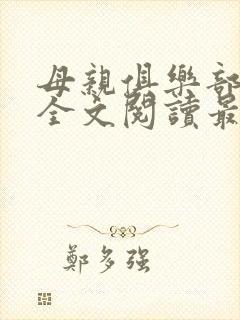 母親俱樂部
全文閱讀最
鄭多強